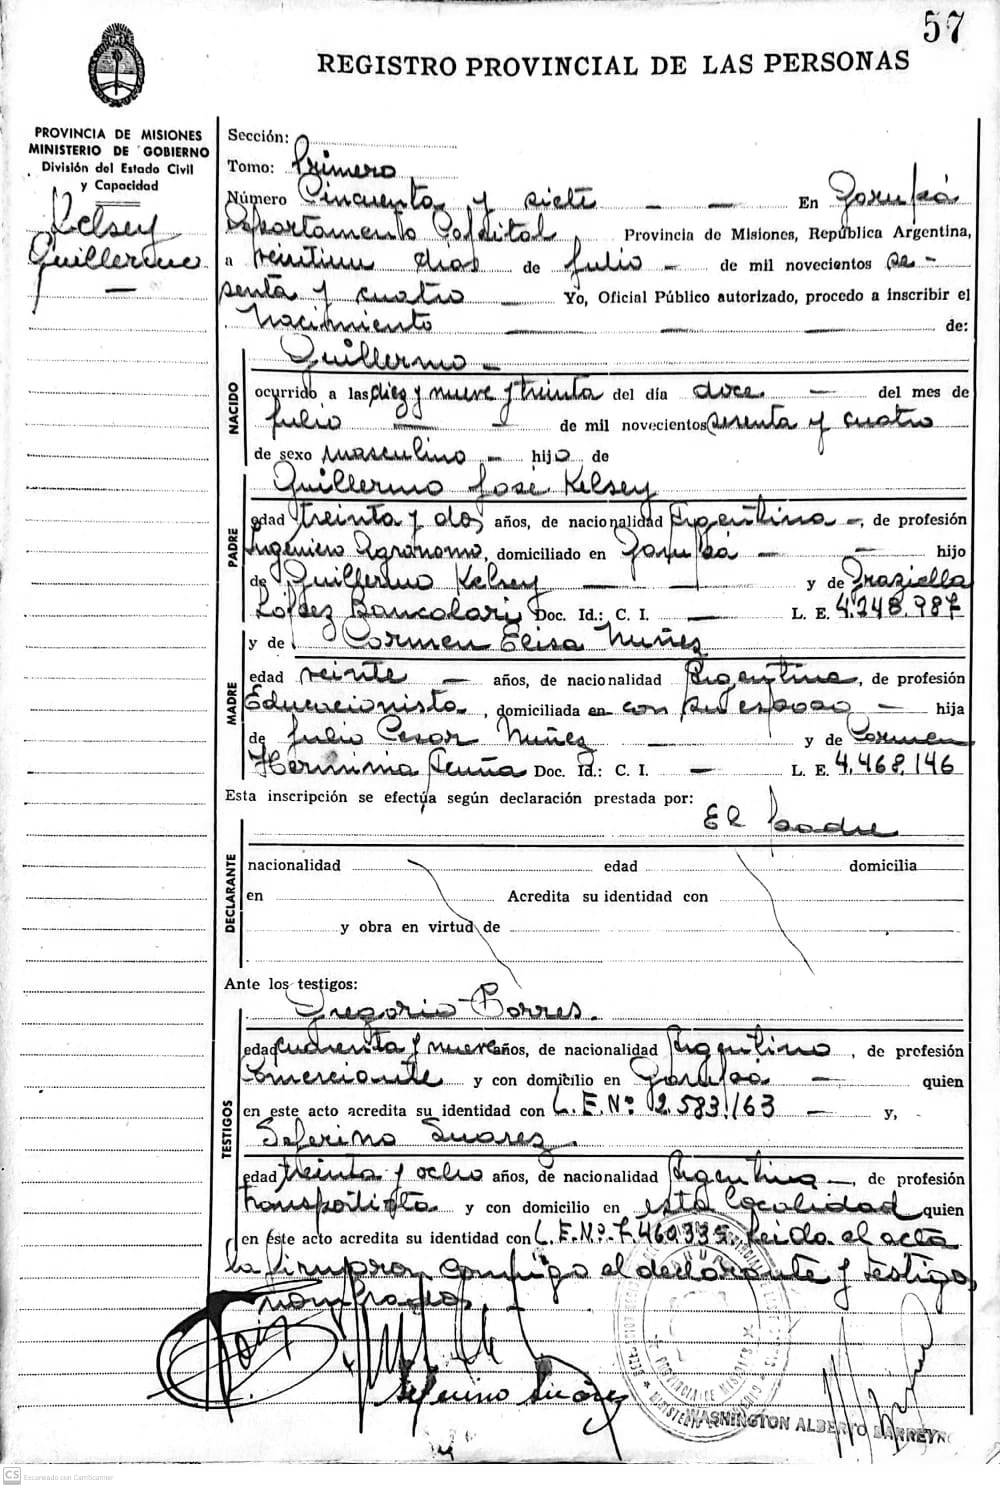 57
REGISTRO PROVINCIAL DE LAS PERSONAS
PROVINCIA DE MISIONES
MINISTERIO DE GOBIERNO
División del Estado Civil
y Capacidad
Kelsey
Guillermo
Sección:
Tomo: Primero
Número Cincuenta y siete — — En Garupá
Departamento Capital Provincia de Misiones, República Argentina,
a veintiun dias de Julio — de mil novecientos se-
senta y cuatro — Yo, Oficial Público autorizado, procedo a inscribir el
Nacimiento — — — de:
NACIDO
Guillermo —
ocurrido a las diez y nueve y treinta del día doce — del mes de
Julio — — de mil novecientos sesenta y cuatro
de sexo masculino — hijo de
PADRE
Guillermo José Kelsey
edad treinta y dos años, de nacionalidad Argentina —, de profesión
Ingeniero Agronomo, domiciliado en Garupá — — hijo
de Guillermo Kelsey — — y de Graziella
López Bancalari Doc. Id.: C. I. — L. E. 4.248.987
y de Carmen Elisa Nuñez
MADRE
edad veinte — años, de nacionalidad Argentina, de profesión
Educacionista, domiciliada en con su esposo — hija
de Julio Cesar Nuñez — y de Carmen
Herminia Acuña Doc. Id.: C. I. — L. E. 4.468.146
Esta inscripción se efectúa según declaración prestada por:
El padre
DECLARANTE
nacionalidad edad domicilia
en Acredita su identidad con
y obra en virtud de
Ante los testigos:
TESTIGOS
Gregorio Torres.
edad cuarenta y nueve años, de nacionalidad Argentino, de profesión
Comerciante y con domicilio en Garupá — quien
en este acto acredita su identidad con L.E.Nº 2.583.163 — y,
Seferino Suarez.
edad treinta y ocho años, de nacionalidad Argentina —, de profesión
transportista y con domicilio en esta localidad quien
en éste acto acredita su identidad con L.E.Nº 7.460.335. Leida el acta
la firmaron conmigo el declarante y testigos
nombrados.
Seferino Suárez
WASHINGTON ALBERTO BARREYRO
CS Escaneado con CamScanner